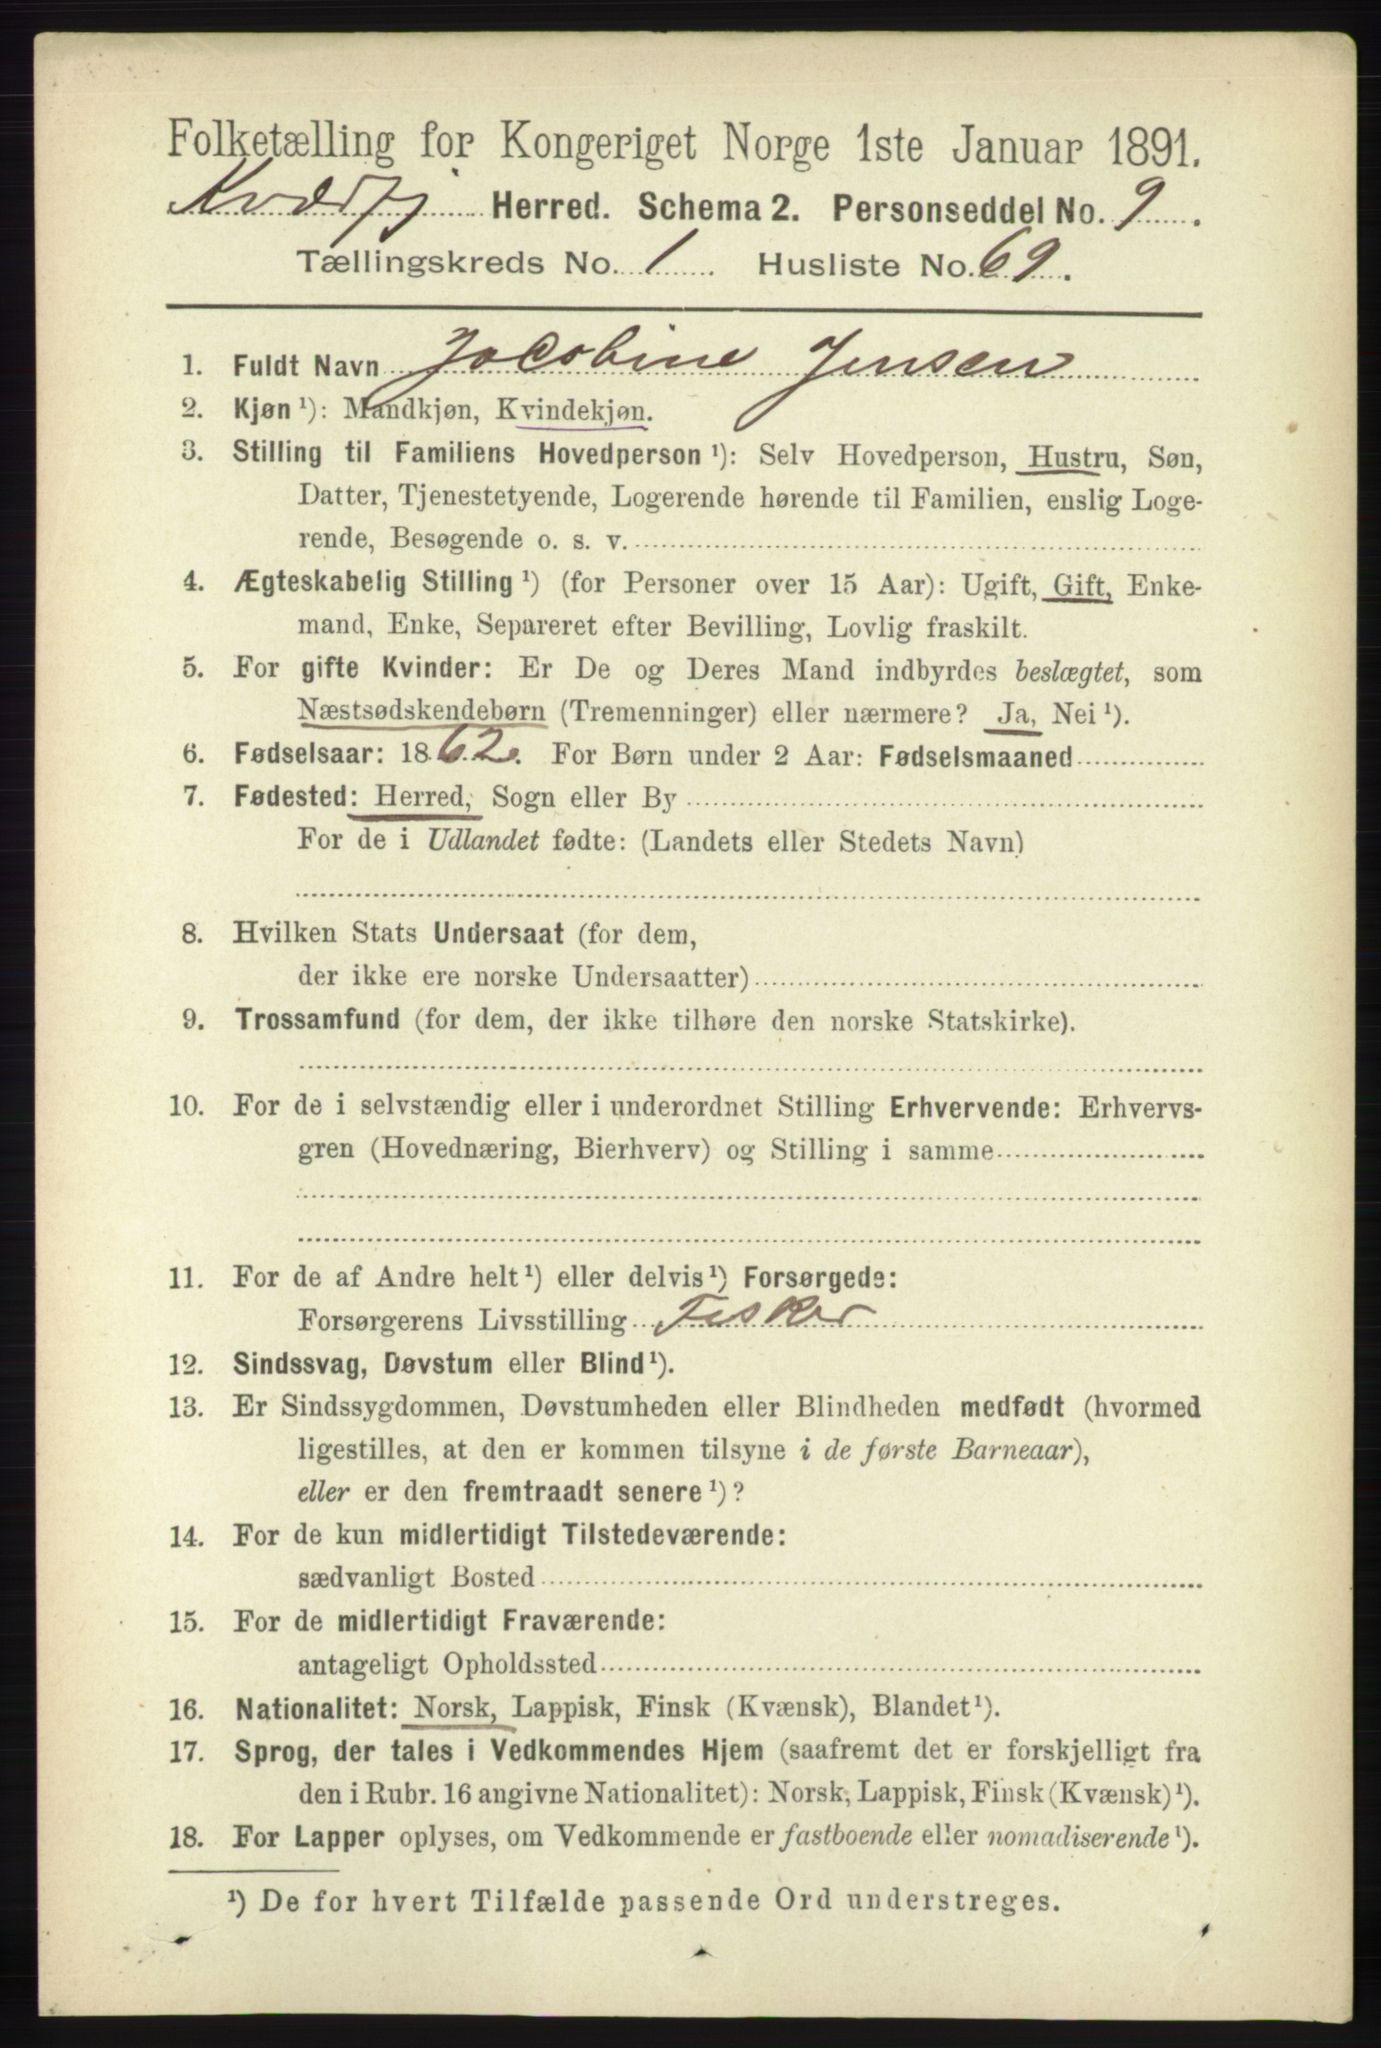 Folketælling for Kongeriget Norge 1ste Januar 1891.
Kvædfj Herred. Schema 2. Personseddel No. 9.
Tællingskreds No. 1. Husliste No. 69.
1. Fuldt Navn Jacobine Jensen
2. Kjøn ¹): Mandkjøn, Kvindekjøn.
3. Stilling til Familiens Hovedperson ¹): Selv Hovedperson, Hustru, Søn,
Datter, Tjenestetyende, Logerende hørende til Familien, enslig Loge-
rende, Besøgende o. s. v.
4. Ægteskabelig Stilling ¹) (for Personer over 15 Aar): Ugift, Gift, Enke-
mand, Enke, Separeret efter Bevilling, Lovlig fraskilt.
5. For gifte Kvinder: Er De og Deres Mand indbyrdes beslægtet, som
Næstsødskendebørn (Tremenninger) eller nærmere? Ja, Nei ¹).
6. Fødselsaar: 1862. For Børn under 2 Aar: Fødselsmaaned
7. Fødested: Herred, Sogn eller By
For de i Udlandet fødte: (Landets eller Stedets Navn)
8. Hvilken Stats Undersaat (for dem,
der ikke ere norske Undersaatter)
9. Trossamfund (for dem, der ikke tilhøre den norske Statskirke).
10. For de i selvstændig eller i underordnet Stilling Erhvervende: Erhvervs-
gren (Hovednæring, Bierhverv) og Stilling i samme
11. For de af Andre helt ¹) eller delvis ¹) Forsørgede:
Forsørgerens Livsstilling Fisker
12. Sindssvag, Døvstum eller Blind ¹).
13. Er Sindssygdommen, Døvstumheden eller Blindheden medfødt (hvormed
ligestilles, at den er kommen tilsyne i de første Barneaar),
eller er den fremtraadt senere ¹)?
14. For de kun midlertidigt Tilstedeværende:
sædvanligt Bosted
15. For de midlertidigt Fraværende:
antageligt Opholdssted
16. Nationalitet: Norsk, Lappisk, Finsk (Kvænsk), Blandet ¹).
17. Sprog, der tales i Vedkommendes Hjem (saafremt det er forskjelligt fra
den i Rubr. 16 angivne Nationalitet): Norsk, Lappisk, Finsk (Kvænsk) ¹).
18. For Lapper oplyses, om Vedkommende er fastboende eller nomadiserende ¹).
¹) De for hvert Tilfælde passende Ord understreges.